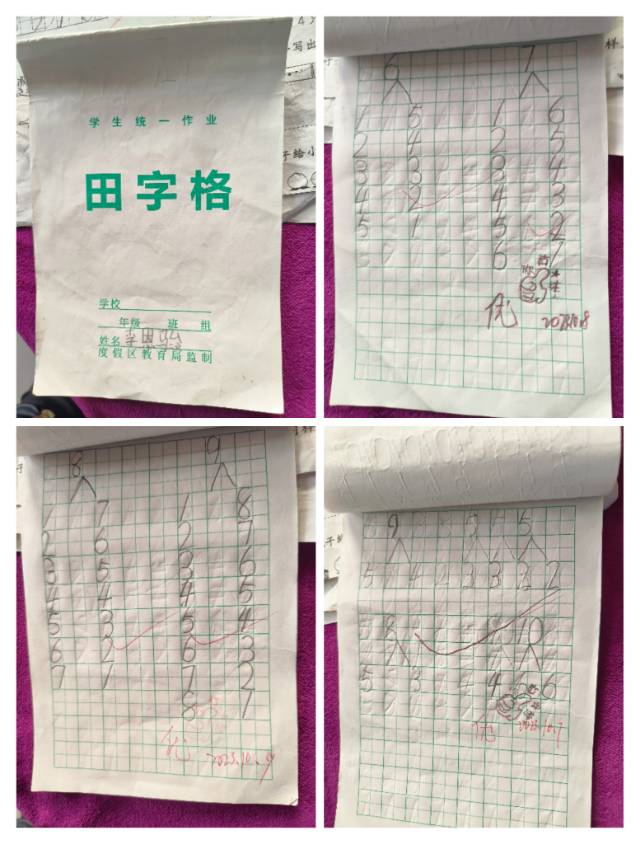 学生统一作业
田字格
学校
年级 班 组
姓名
度假区教育局监制
6 7
1 5 1 6
2 4 2 5
3 3 3 4
4 2 4 3
5 1 5 2
6 1
优
8 9
1 7 1 8
2 6 2 7
3 5 3 6
4 4 4 5
5 3 5 4
6 2 6 3
7 1 7 2
8 1
优 2023.10.9
9 3 5
5 4
8 10
5 3 4 6
优 2023.10.7